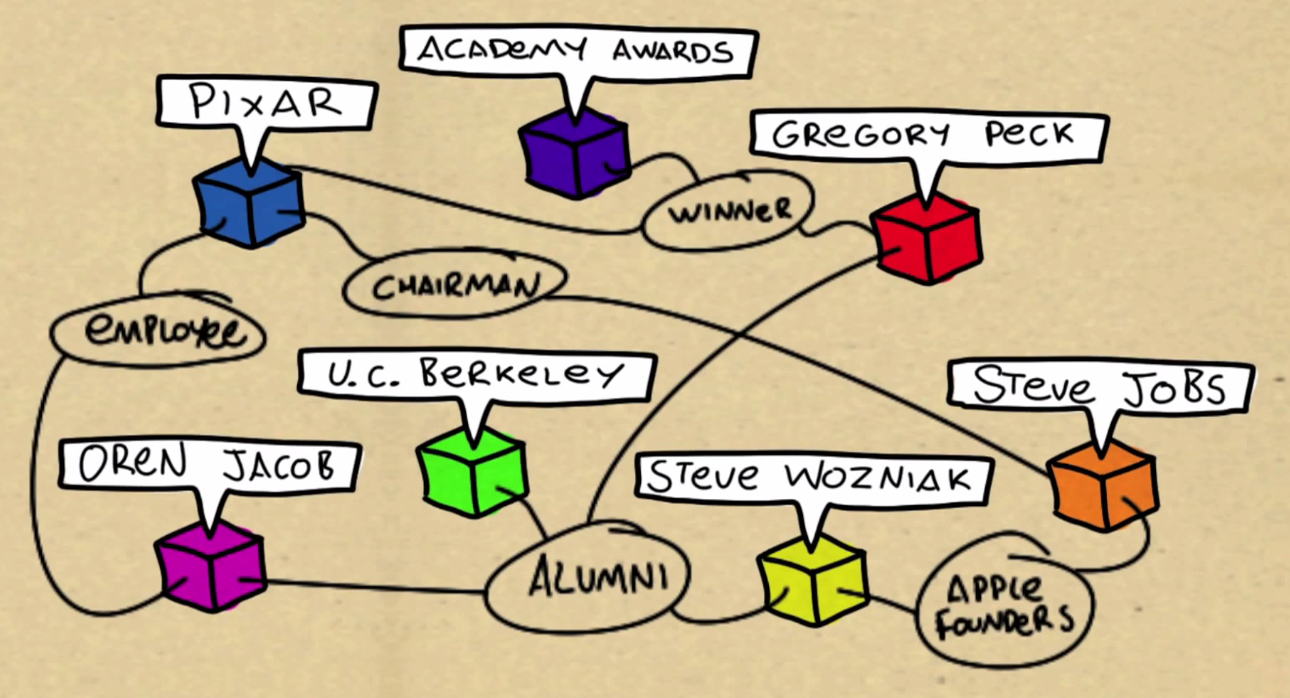 ACADEMY AWARDS
PIXAR
GREGORY PECK
WINNER
CHAIRMAN
EMPLOYEE
U.C. BERKELEY
STEVE JOBS
OREN JACOB
STEVE WOZNIAK
ALUMNI
APPLE
FOUNDERS